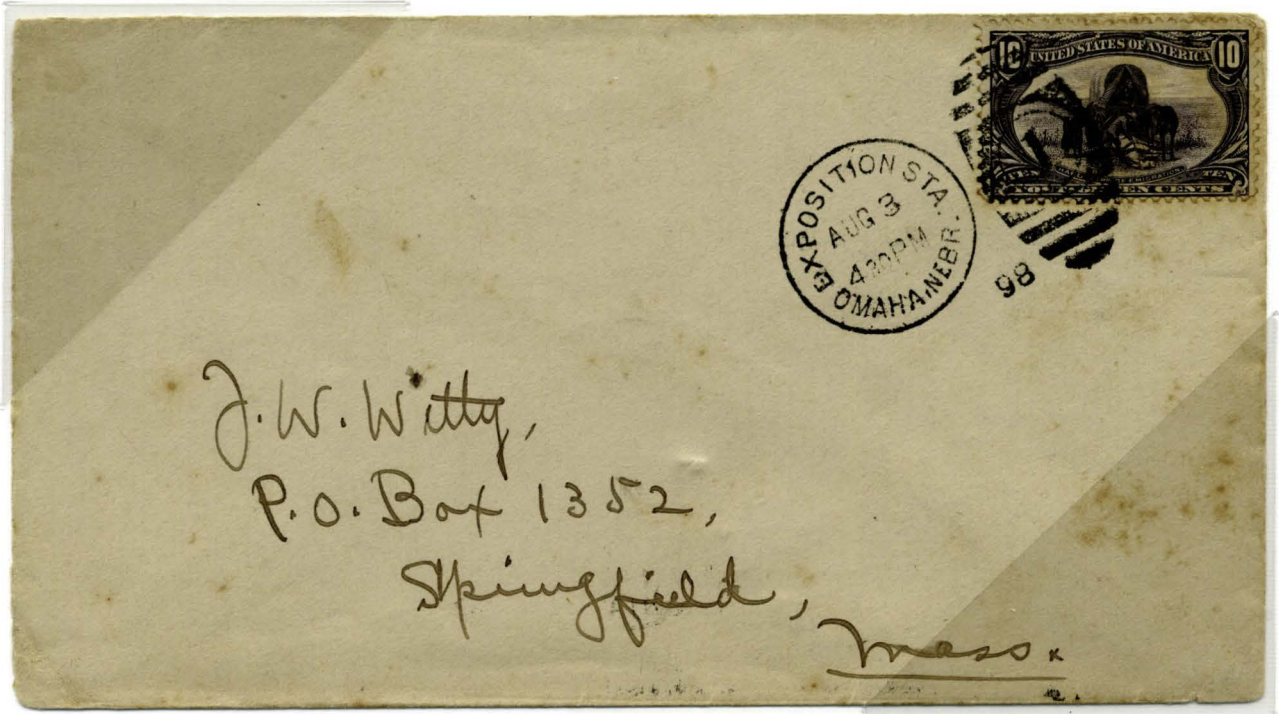 10 UNITED STATES OF AMERICA 10
TEN
TEN CENTS
EXPOSITION STA.
AUG 3
4 30 PM
OMAHA, NEBR.
98
J. W. Witty,
P.O. Box 1352,
Springfield,
Mass.